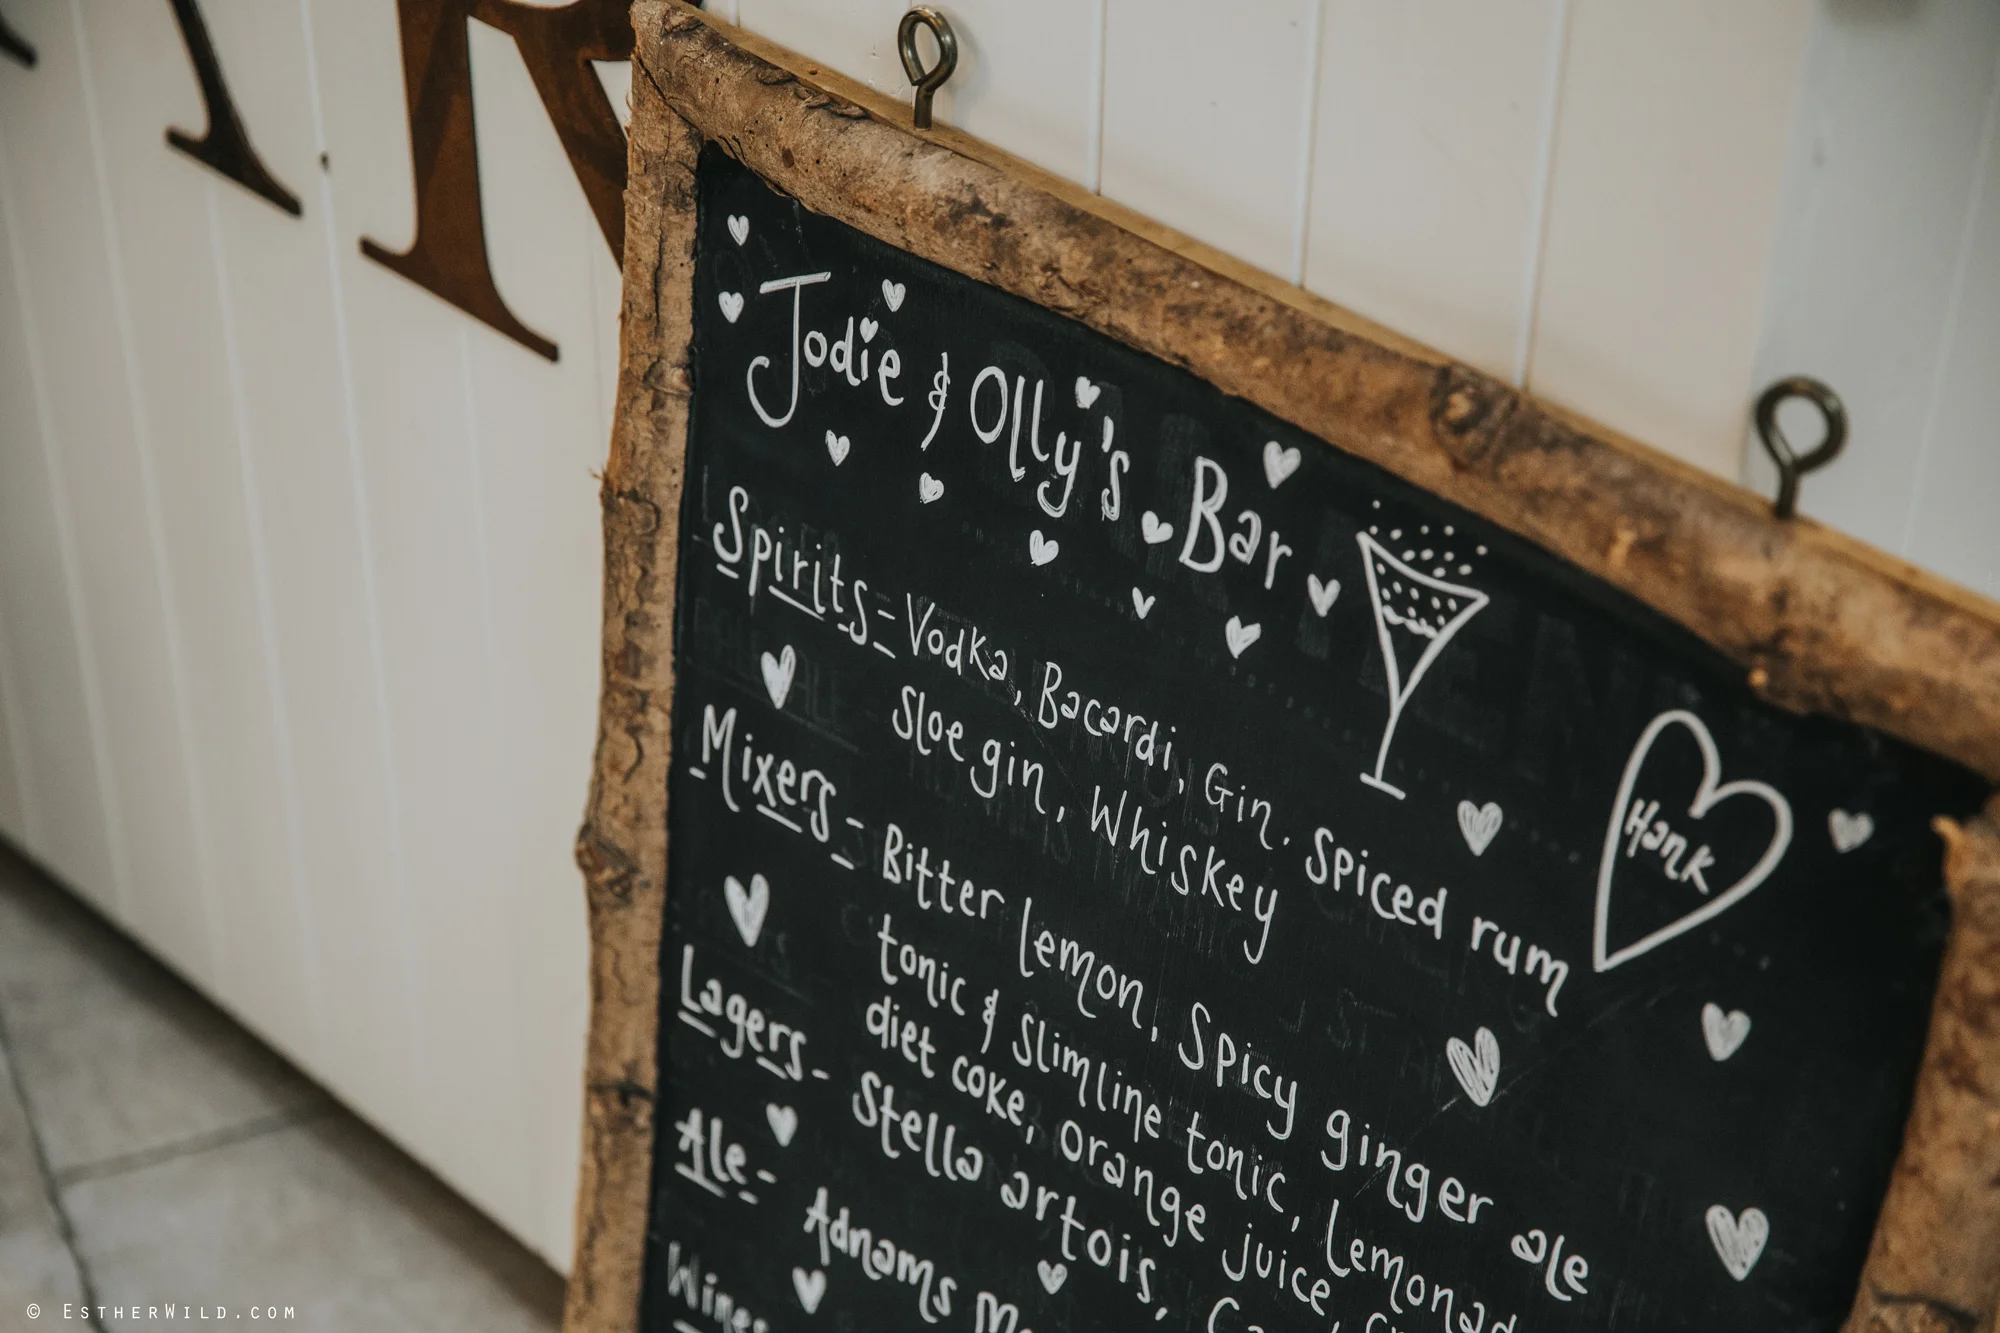 Jodie & Olly's Bar
Spirits - Vodka, Bacardi, Gin, Spiced rum
Sloe gin, Whiskey
Hank
Mixers - Bitter lemon, Spicy ginger ale
tonic & Slimline tonic, Lemonad
diet coke, orange juice,
Lagers - Stella artois,
Ale - Adnams
Wines
© ESTHERWILD.COM